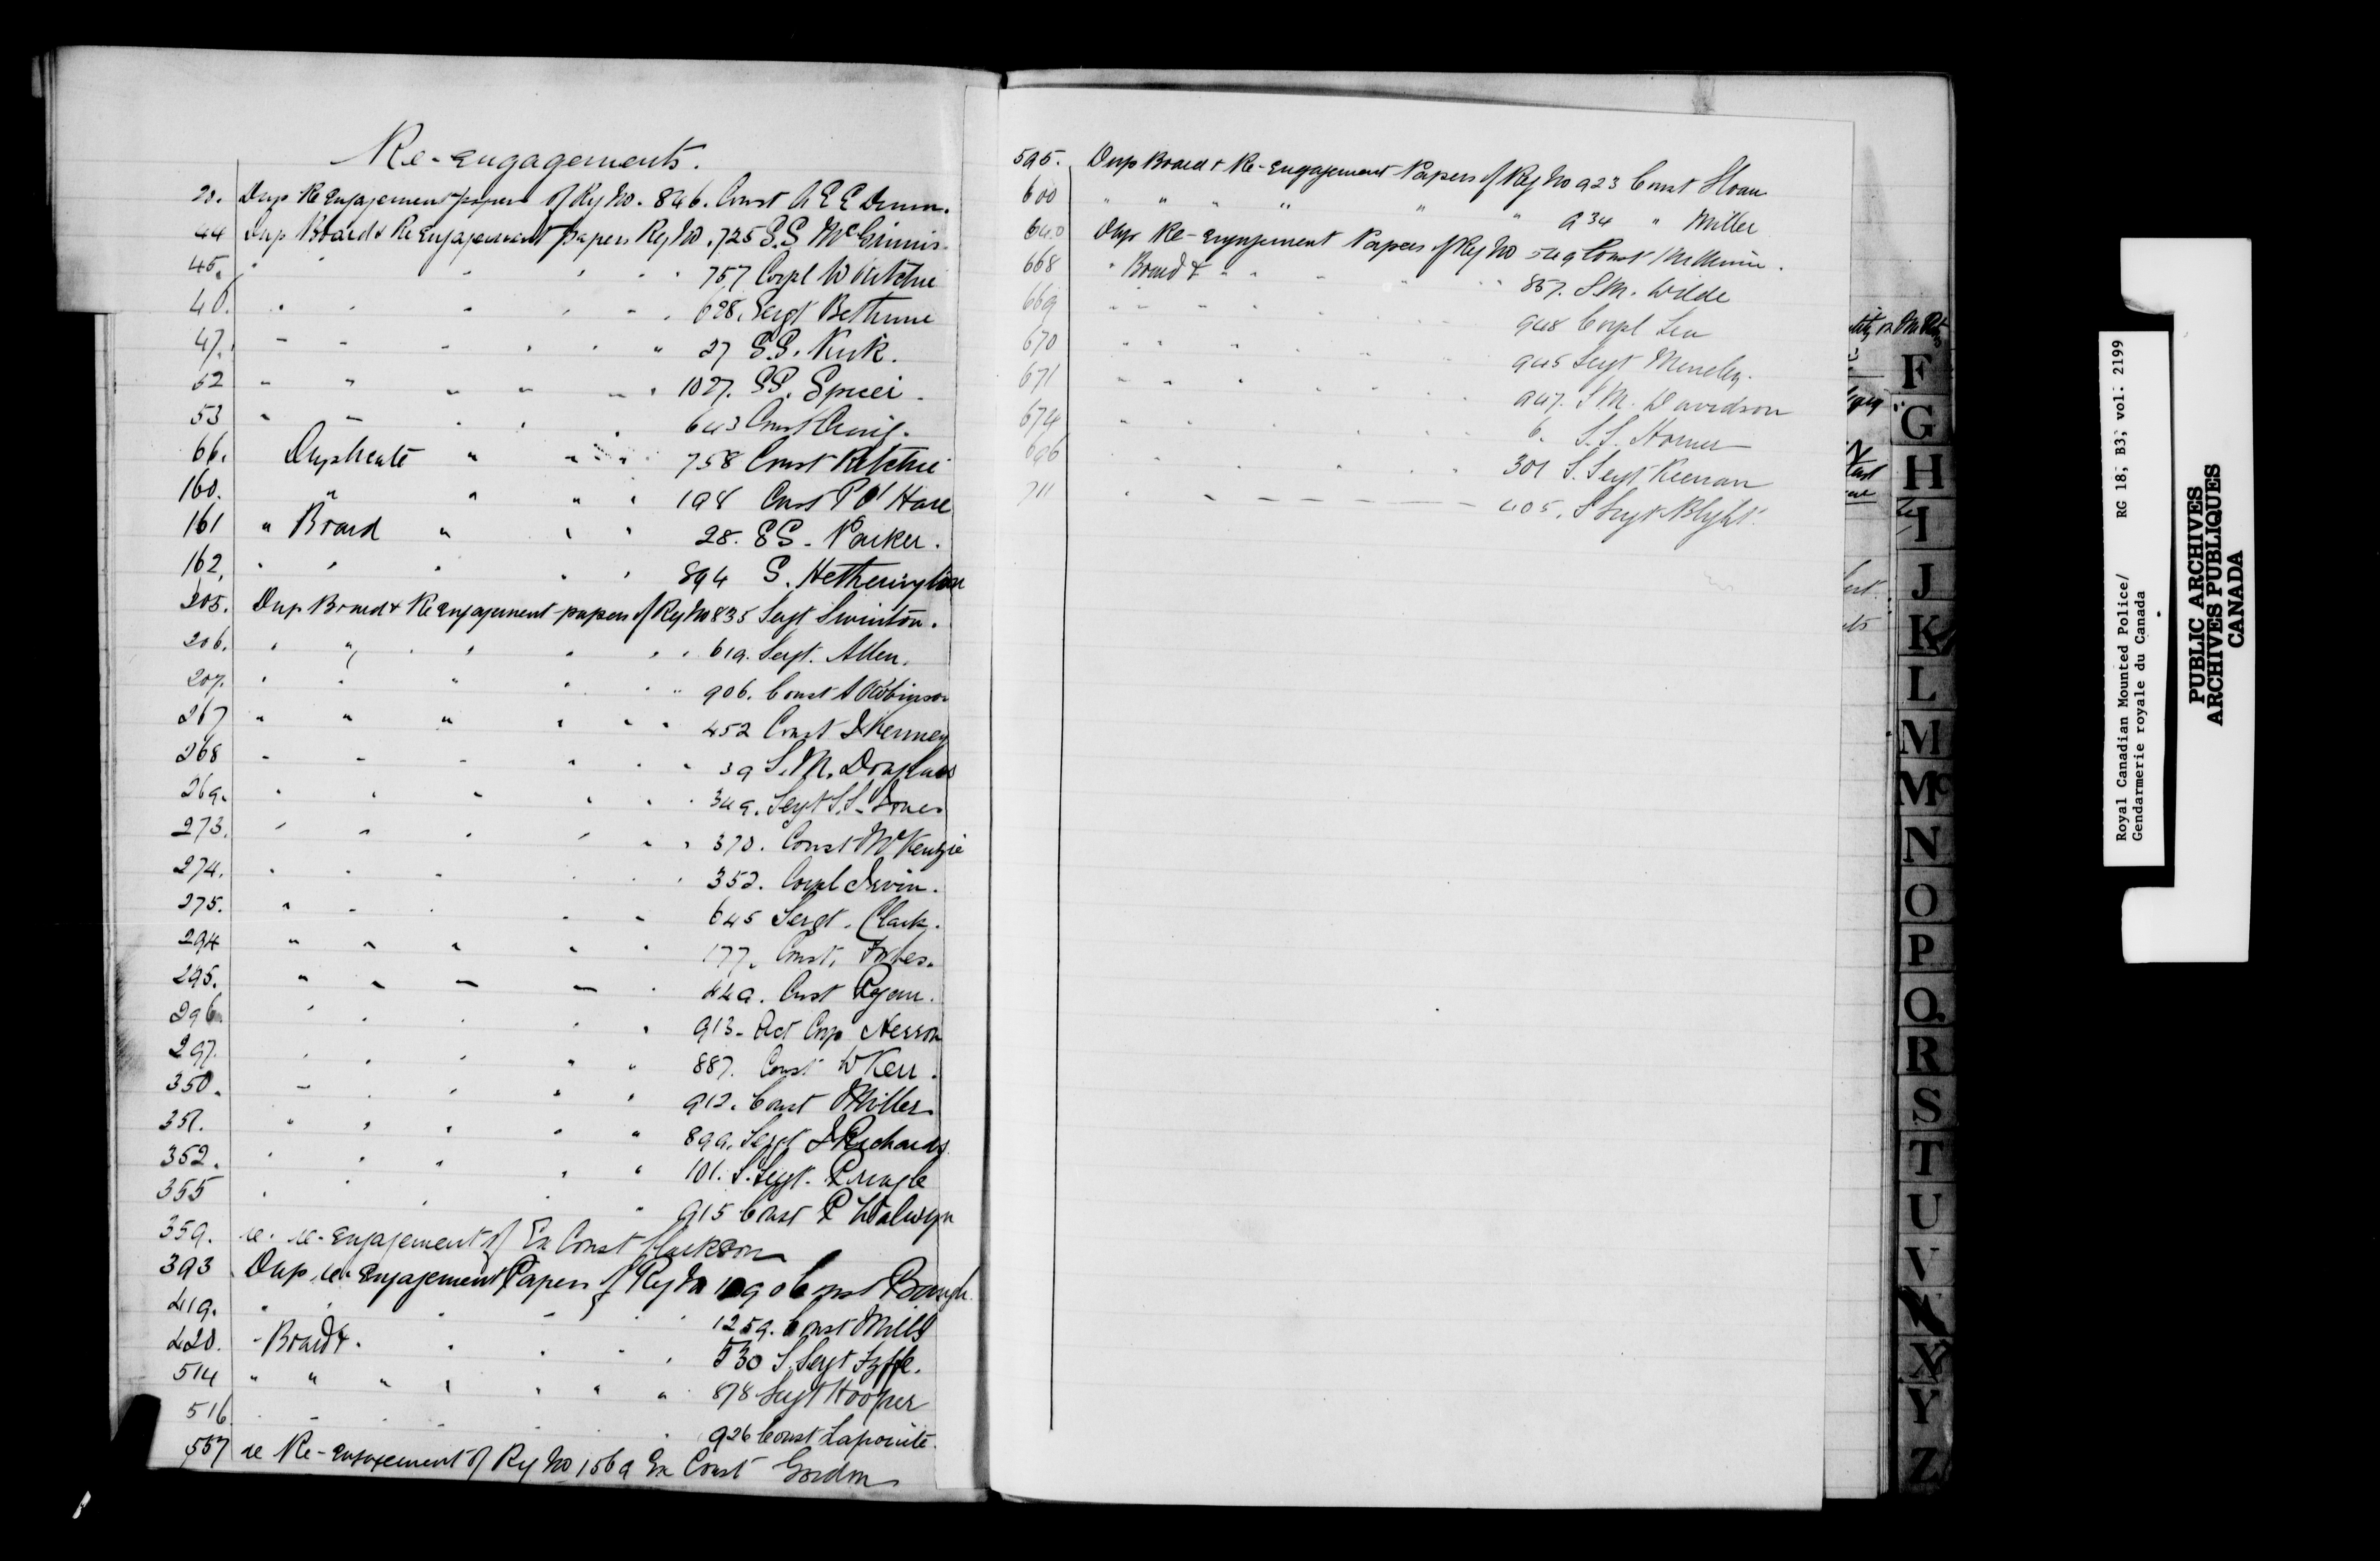 Re-engagements.
20. Dup Re Engagement papers of Reg No. 846. Const A E E Dunn.
44 Dup Board & Re Engagement papers Reg No. 725 S.S McGinnis.
45. " " " " " 757 Corpl W Ritchie
46. " " " " " 628. Sergt Bethune
47. " " " " " 27 S.S. Kirk.
52 " " " " " 1027. SS.
53 " " " " 643 Const Craig.
66. Duplicate " " " 758 Const Ritchie
160. " " " " 198 Const P O'Hare
161 " Board " " " 28. SS. Parker.
162, " " " " " 894 S. Hetherington
205. Dup Board & Re Engagement papers of Reg No 835 Sergt Swinton.
206. " " " " " " 619. Sergt. Allen.
207. " " " " " " 906. Const A Robinson
267 " " " " " " 452 Const J Kenney
268 " " " " " " 39 S.M. Douglas
269. " " " " " " 349. Sergt S.S. Jones
273. " " " " " " 370. Const McKenzie
274. " " " " " " 352. Corpl Irvin.
275. " " " " " 645 Sergt. Clark.
294 " " " " " 177. Const. Forbes.
295. " " " " " 449. Cnst Ryan.
296. " " " " " 913. Act Corp Nesson
297. " " " " " 887. Const W Kerr.
350. " " " " " 912. Const Miller
351. " " " " " 899. Sergt J Richards
352. " " " " " 101. S. Sergt. Pringle
355 " " " " " 915 Const P Walwyn
359. re. re-engagement of Ex Const Clarkson
393 Dup re Engagement Papers of Reg No 1090 Const Baugh.
419. " " " " " 1259. Const Mills
420. " Board & " " " " 530 S. Sergt Fyffe.
514 " " " " " " " 878 Sergt Hooper
516. " " " " " 926 Const Lapointe.
557 re Re-engagement of Reg No 1569 Ex Const Gordon
595. Dup Board & Re-Engagement Papers of Reg No 923 Const Sloan
600 " " " " " " 934 " Miller
640 Dup Re-Engagement Papers of Reg No 549 Const
668 " Board & " " " " " 857. S.M. Wilde
669 " " " " " " " 948 Corpl
670 " " " " " 945 Sergt
671 " " " " " 947. S.M. Davidson
674 " " " " " 6. S.S. Horner
696 " " " " " 301 S. Sergt Keenan
711 " " " " " 405. S Sergt Blight.
F
G
H
I
J
K
L
M
Mc
N
O
P
Q
R
S
T
U
V
X
Y
Z
Royal Canadian Mounted Police/ RG 18, B3, vol: 2199
Gendarmerie royale du Canada
PUBLIC ARCHIVES
ARCHIVES PUBLIQUES
CANADA